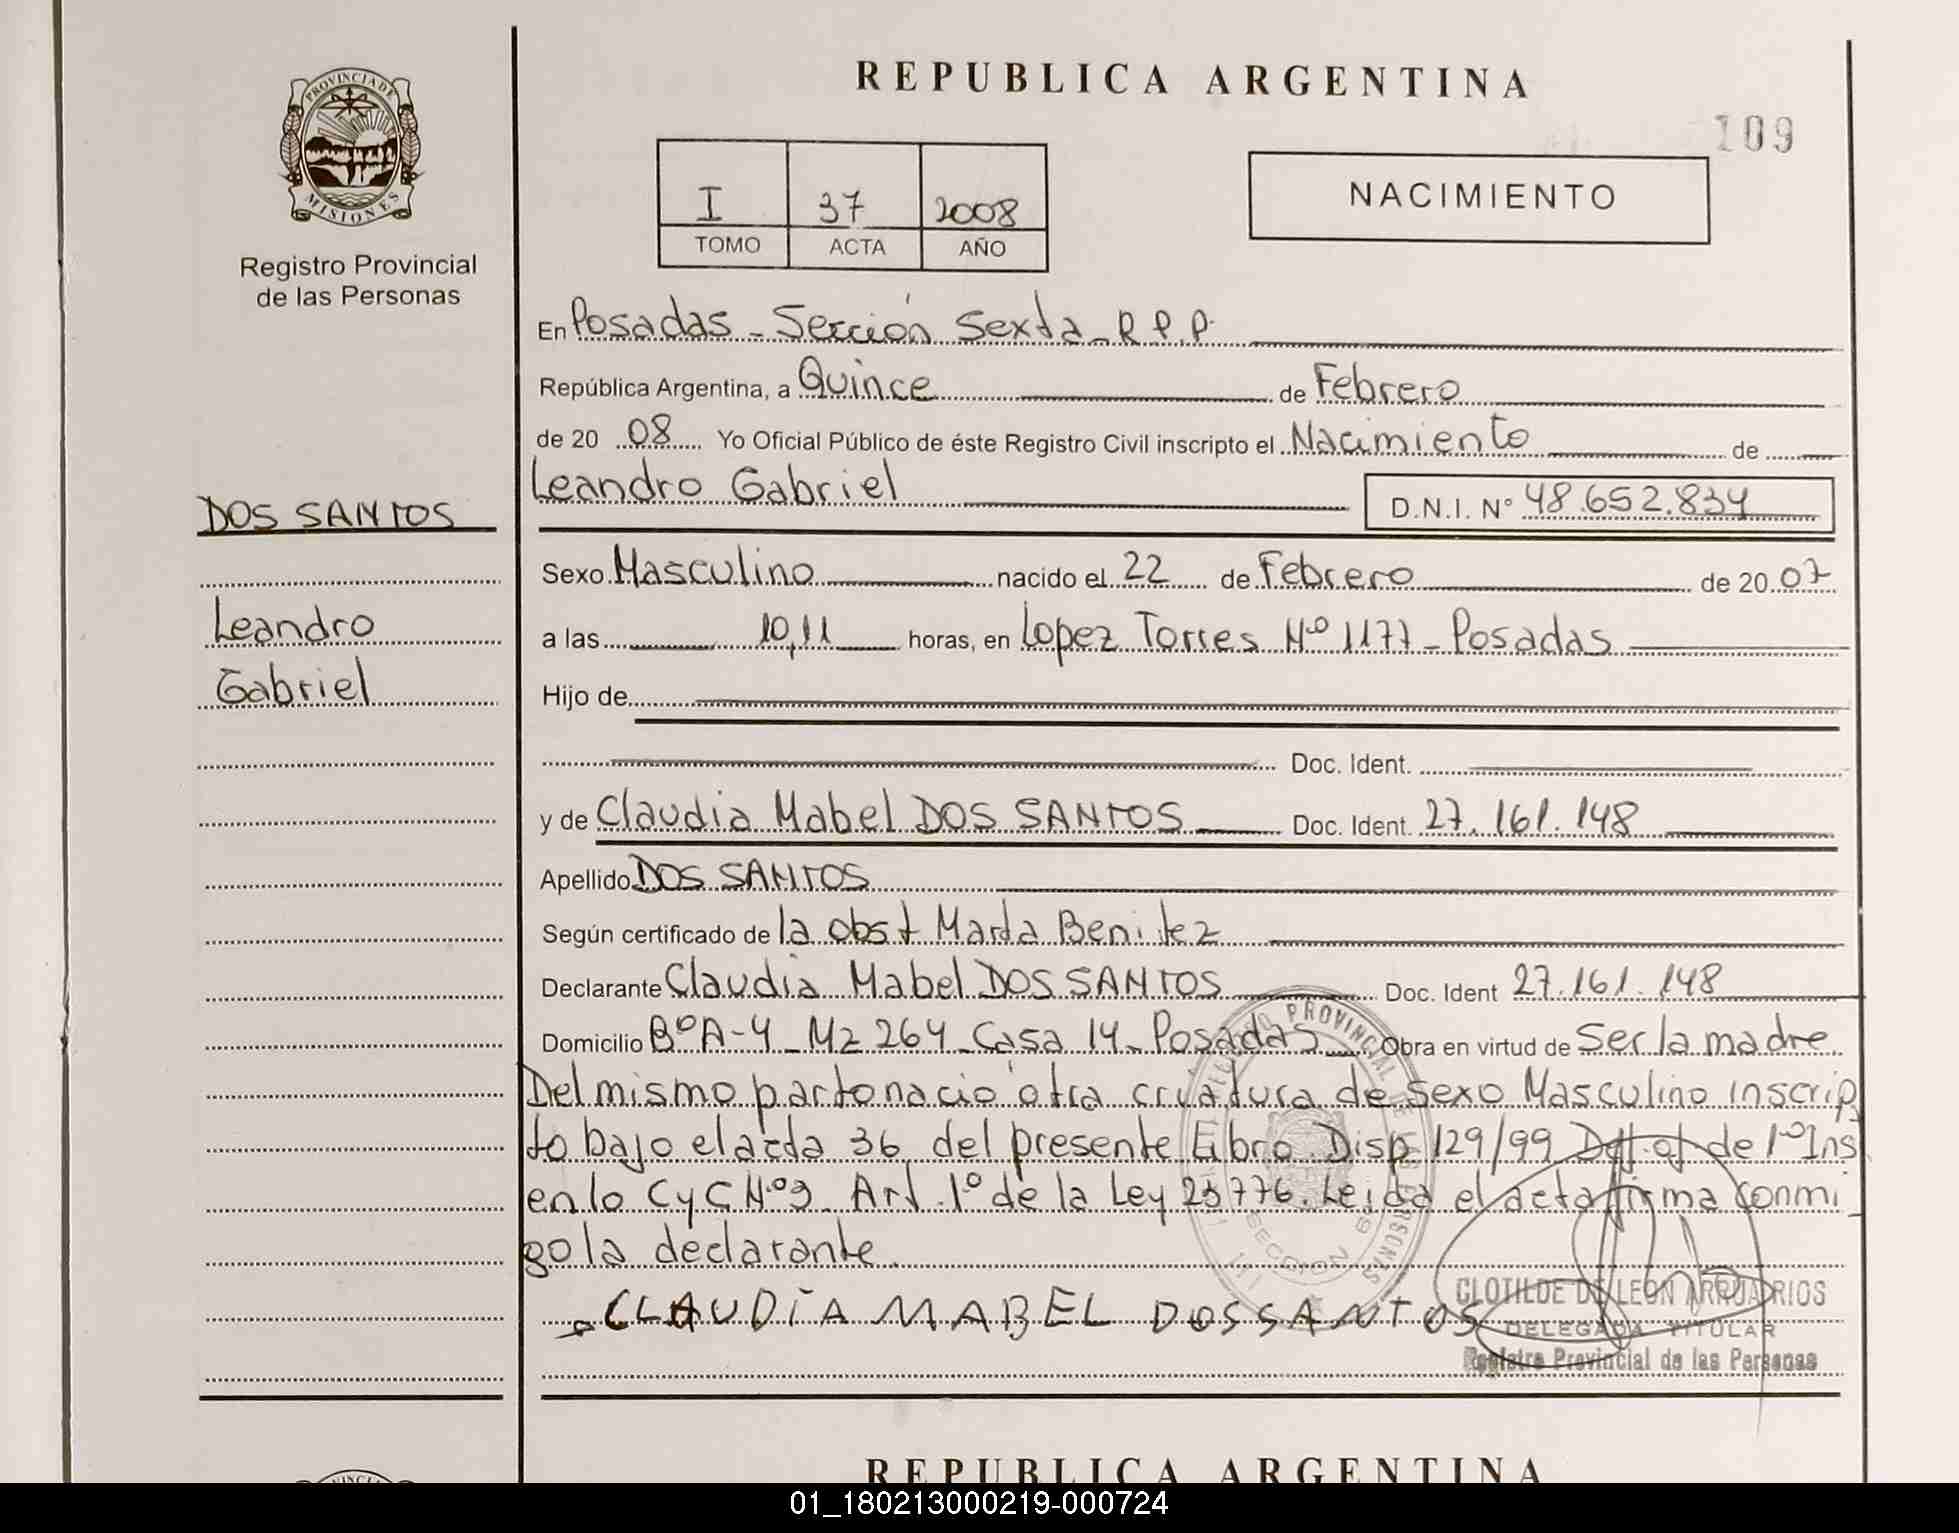 PROVINCIA DE
MISIONES
Registro Provincial
de las Personas
REPUBLICA ARGENTINA
109
I 37 2008
TOMO ACTA AÑO
NACIMIENTO
En Posadas - Sección Sexta - R.P.P.
República Argentina, a Quince de Febrero
de 20 08 Yo Oficial Público de éste Registro Civil inscripto el Nacimiento de
Leandro Gabriel D.N.I. N° 48.652.834
DOS SANTOS
Leandro
Gabriel
Sexo Masculino nacido el 22 de Febrero de 20 07
a las 10,11 horas, en Lopez Torres Nº 1177 - Posadas
Hijo de
Doc. Ident.
y de Claudia Mabel DOS SANTOS Doc. Ident. 27.161.148
Apellido DOS SANTOS
Según certificado de la obst Marta Benitez
Declarante Claudia Mabel DOS SANTOS Doc. Ident 27.161.148
Domicilio Bº A-4 - Mz 264 - Casa 14 - Posadas Obra en virtud de Ser la madre
Del mismo parto nacio otra criatura de sexo Masculino inscrip
to bajo el acta 36 del presente Libro. Disp 129/99 de 1º Ins
en lo C y C Nº 9. Art. 1º de la Ley 23776. Leida el acta firma conmi
go la declarante.
CLAUDIA MABEL DOS SANTOS
CLOTILDE DE LEON ARRUA RIOS
DELEGADA TITULAR
Registro Provincial de las Personas
REPUBLICA ARGENTINA
01_180213000219-000724